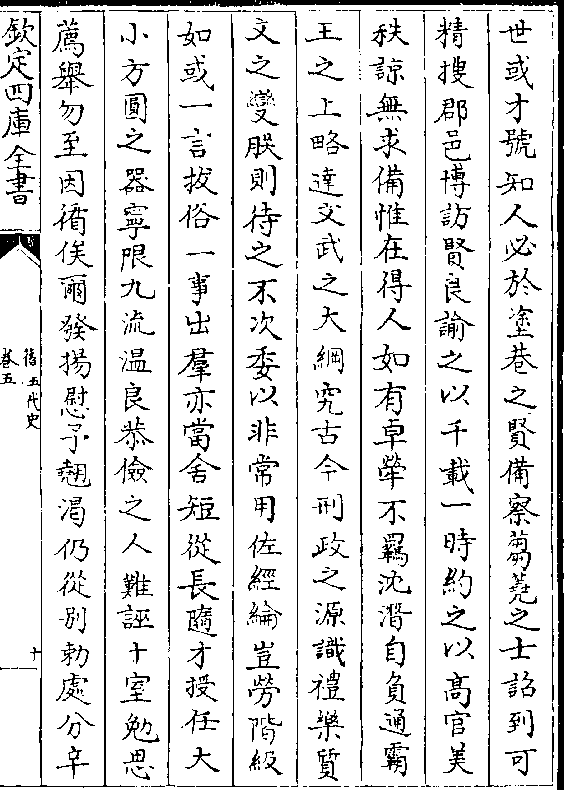 世或才號知人必於塗巷之賢備察蒭蕘之士詔到可
精搜郡邑博訪賢良諭之以千載一時約之以髙官美
秩諒無求備惟在得人如有卓犖不羈沈潛自負通霸
王之上略達文武之大綱究古今刑政之源識禮樂質
文之變朕則待之不次委以非常用佐經綸豈勞階級
如或一言拔俗一事出羣亦當舍短從長隨才授任大
小方圓之器寧限九流温良恭儉之人難誣十室勉思
薦舉勿至因循俟爾發揚慰予翹渴仍從别勅處分辛
欽定四庫全書
舊五代史
卷五
十